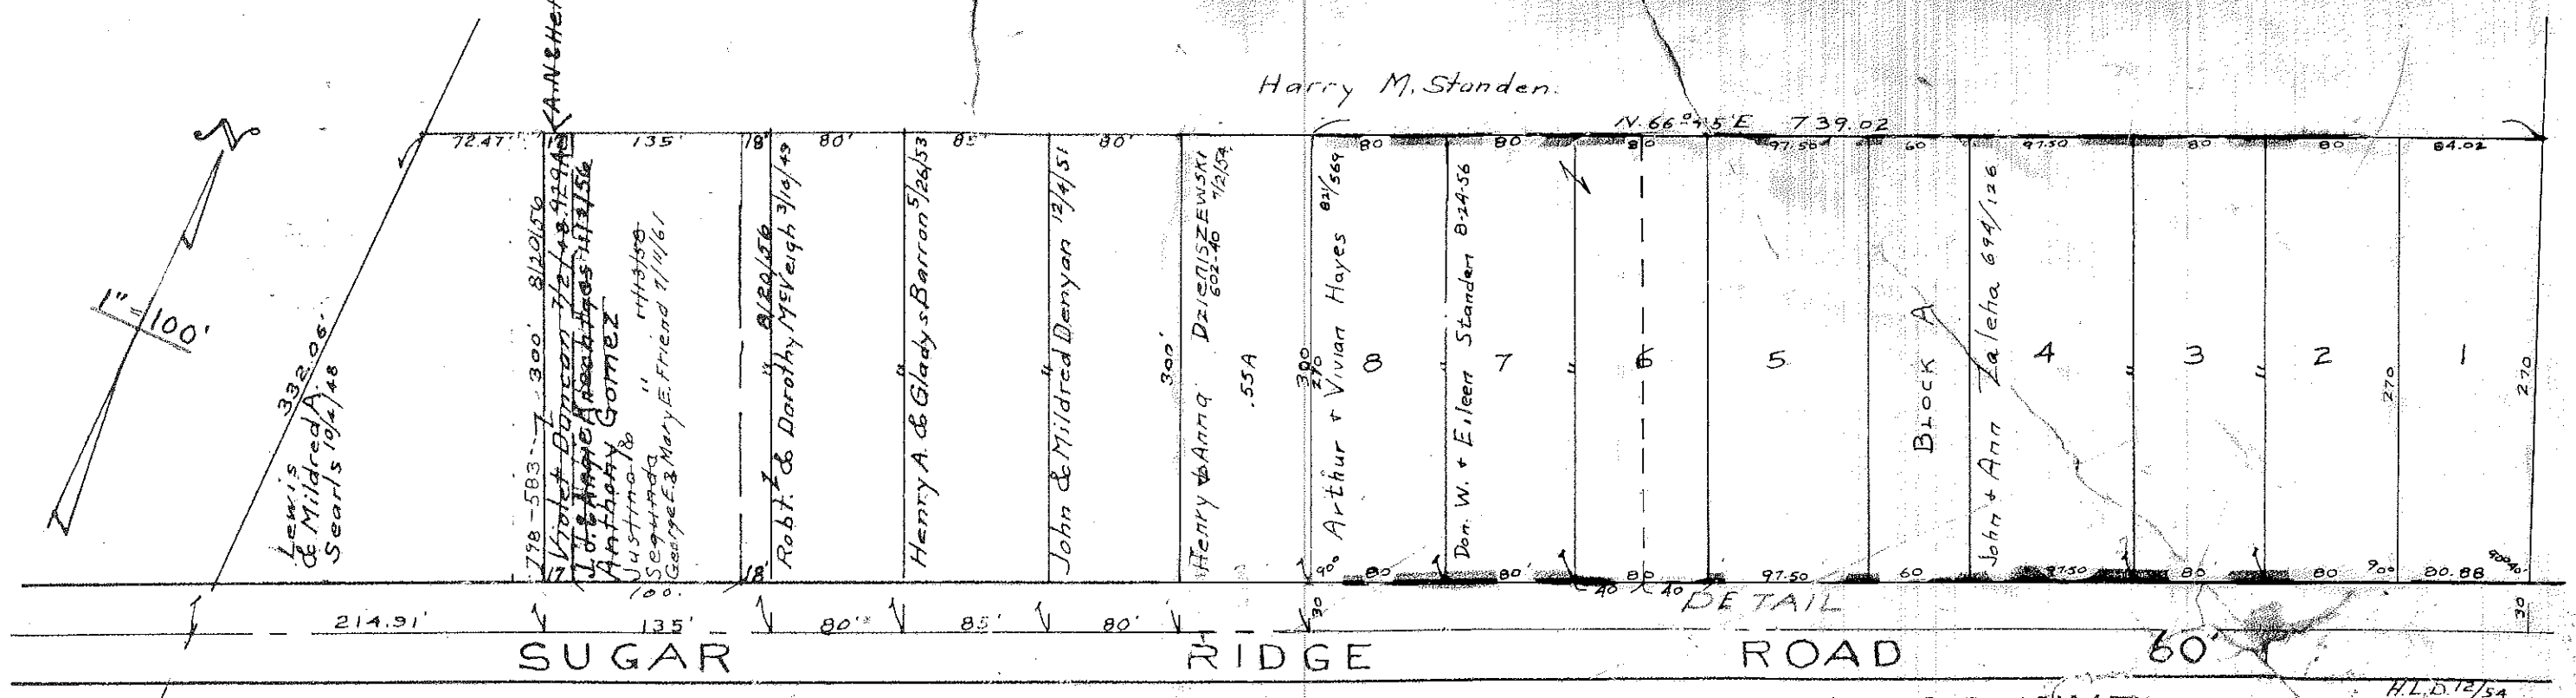 Harry M. Standen.
N. 66° 45' E 739.02
72.47'
17
135'
18'
80'
85'
80'
80
80
80
97.50
60
97.50
80
80
84.02
N
1" = 100'
332.06'
Lewis
& Mildred A.
Searls 10/2/48
798-583 300' 8/20/56
Violet Duncan
Anthony Gomez
Justino &
Segunda " 11/3/58
George E. & Mary E. Friend 7/11/61
" 8/20/56
Robt. & Dorothy McVeigh 3/10/49
"
Henry A. & Gladys Barron 5/26/53
"
John & Mildred Denyan 12/4/51
300'
Henry & Anna DZIENISZEWSKI
602-40 7/2/54
.55A
300
270
Arthur & Vivian Hayes 821/569
8
"
Don. W. & Eileen Standen 8-24-56
7
"
6
5
BLOCK A
John & Ann Zaleha 694/126
4
"
3
"
2
270
1
270
17
100.
18'
90°
80
80'
80
97.50
60
97.50
80
80
90°
80.88
90°
40 40
DETAIL
214.91'
135'
80'
85'
80'
30
30
SUGAR RIDGE ROAD 60'
H.L.D. 12/54